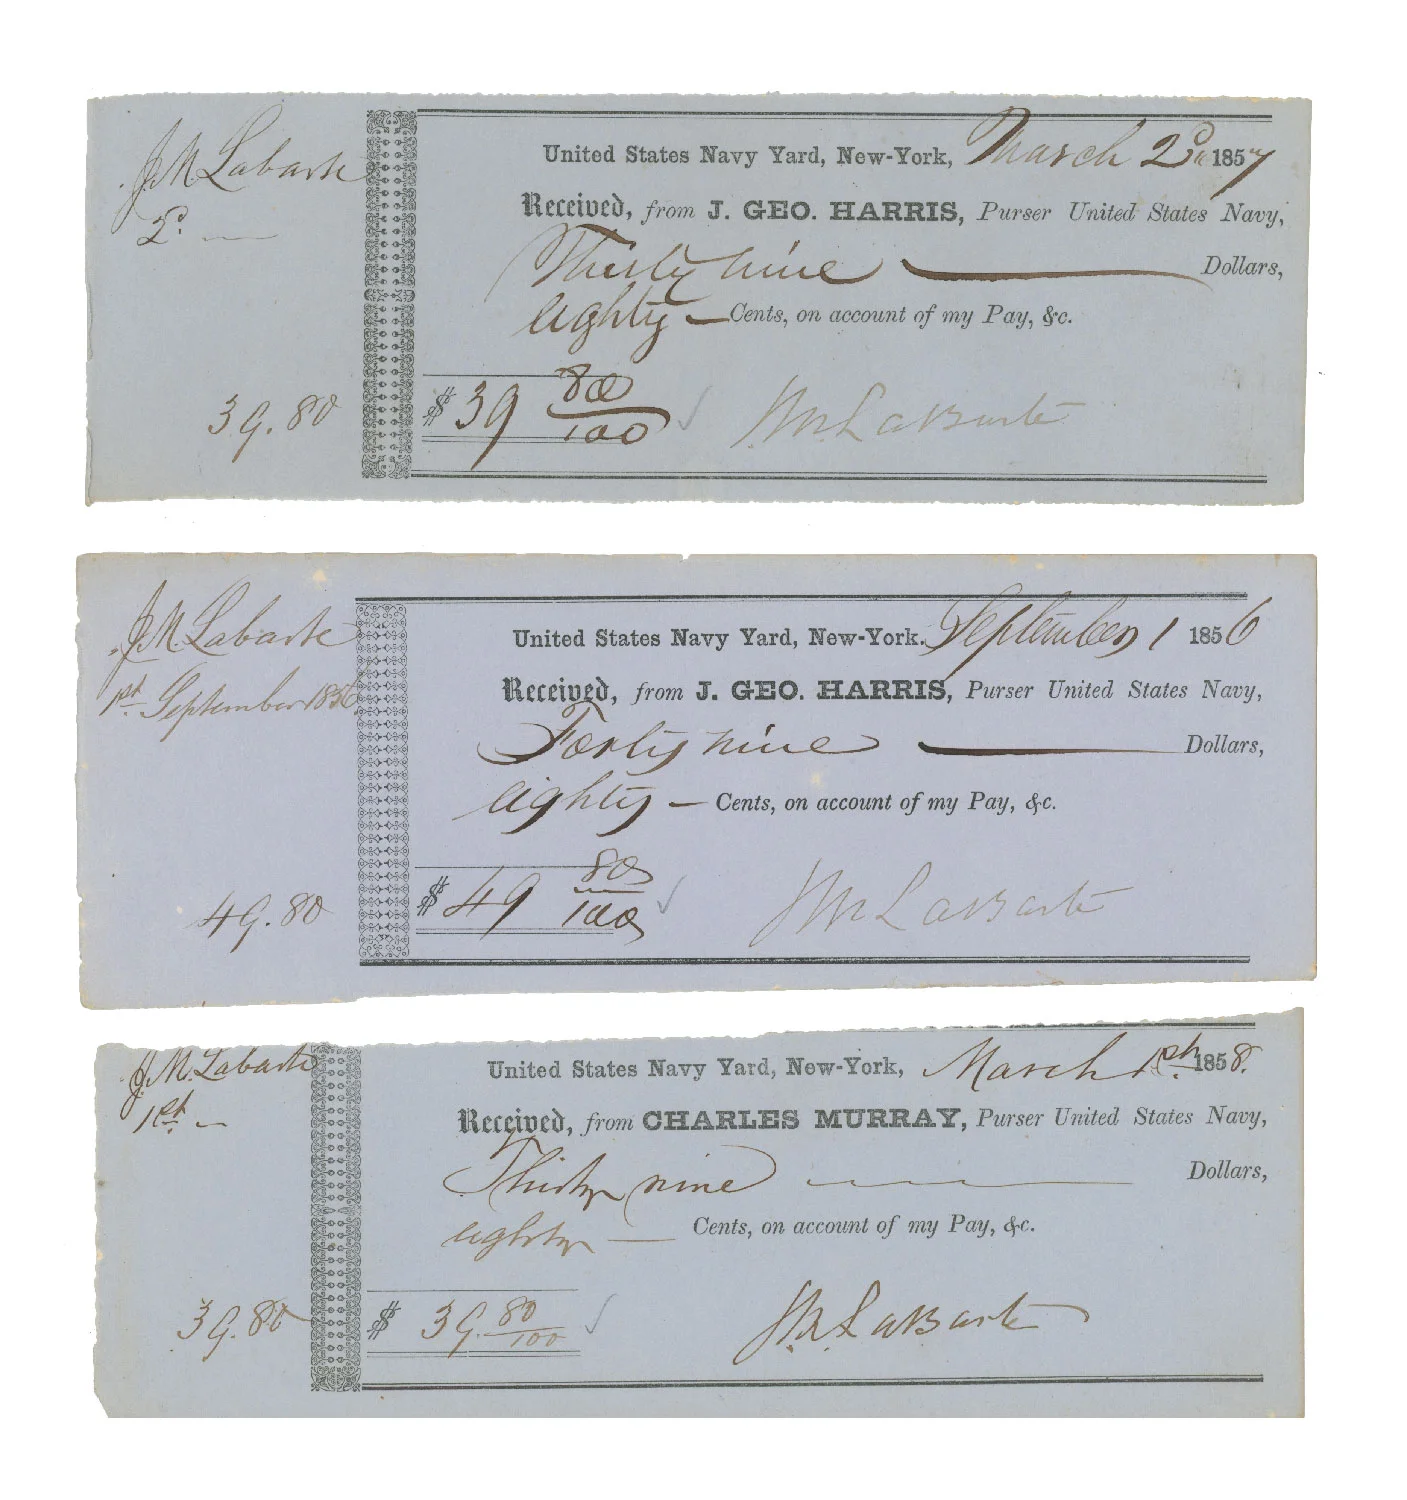 J M Labarte
2d.
39.80
United States Navy Yard, New-York, March 2d 1857
Received, from J. GEO. HARRIS, Purser United States Navy,
Thirty nine Dollars,
eighty — Cents, on account of my Pay, &c.
$ 39 80/100
J.M. LaBarte
J M. Labarte
1st. September 1856
49.80
United States Navy Yard, New-York. September 1 1856
Received, from J. GEO. HARRIS, Purser United States Navy,
Forty nine Dollars,
eighty — Cents, on account of my Pay, &c.
$ 49 80/100
J M LaBarte
J. M. Labarte
1st. —
39.80
United States Navy Yard, New-York, March 1st. 1858.
Received, from CHARLES MURRAY, Purser United States Navy,
Thirty nine Dollars,
eighty — Cents, on account of my Pay, &c.
$ 39. 80/100
J.M. LaBarte